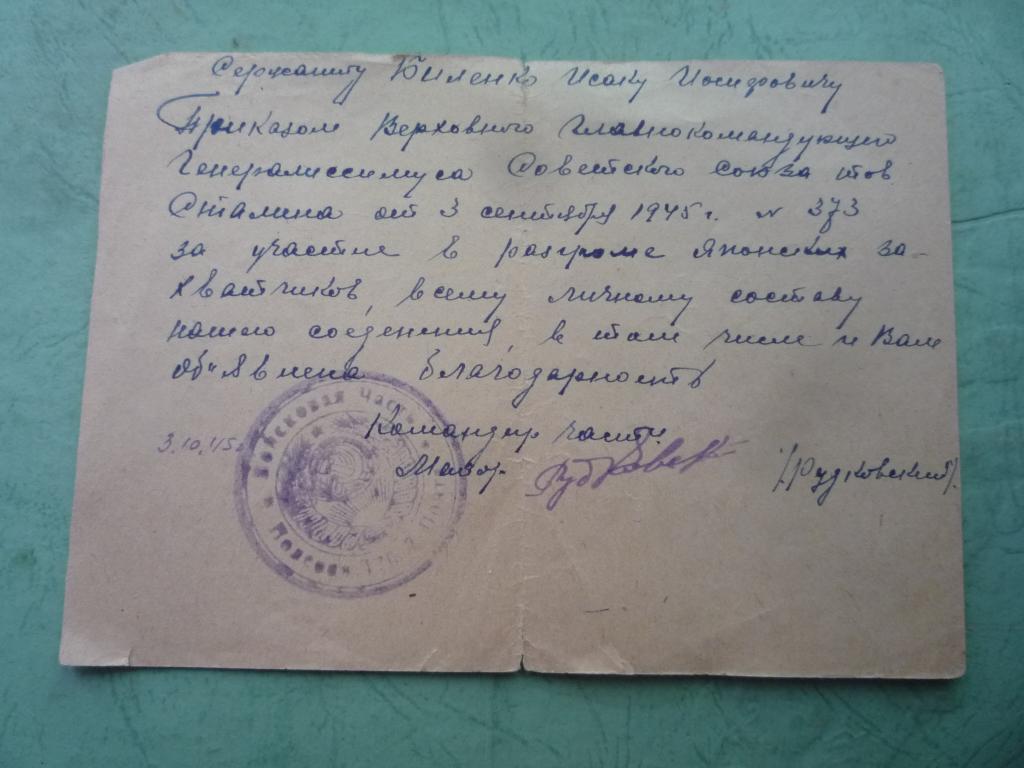 Сержанту Биленко Исаку Иосифовичу
Приказом Верховного Главнокомандующего
Генералиссимуса Советского Союза тов
Сталина от 3 сентября 1945 г. N 373
за участие в разгроме Японских за-
хватчиков, всему личному составу
нашего соединения, в том числе и Вам
об"явлена благодарность
Командир части
3.10.45г
Майор
/Рудковский/.
Войсковая часть
Полевая